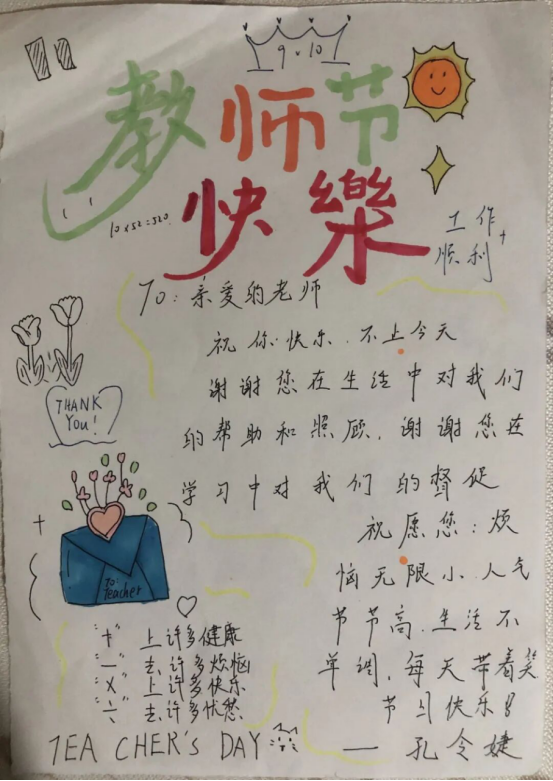 9×10
教师节
快樂
10×52=520
工作
顺利
To：亲爱的老师
祝你快乐．不上今天
谢谢您在生活中对我们
的帮助和照顾．谢谢您在
学习中对我们的督促
祝愿您：烦
恼无限小．人气
节节高．生活不
单调，每天带着笑
节日快乐！
— 孔令婕
THANK
YOU!
To:
Teacher
"+" 上许多健康
"—" 去许多烦恼
"×" 上许多快乐
"÷" 去许多忧愁
TEACHER'S DAY